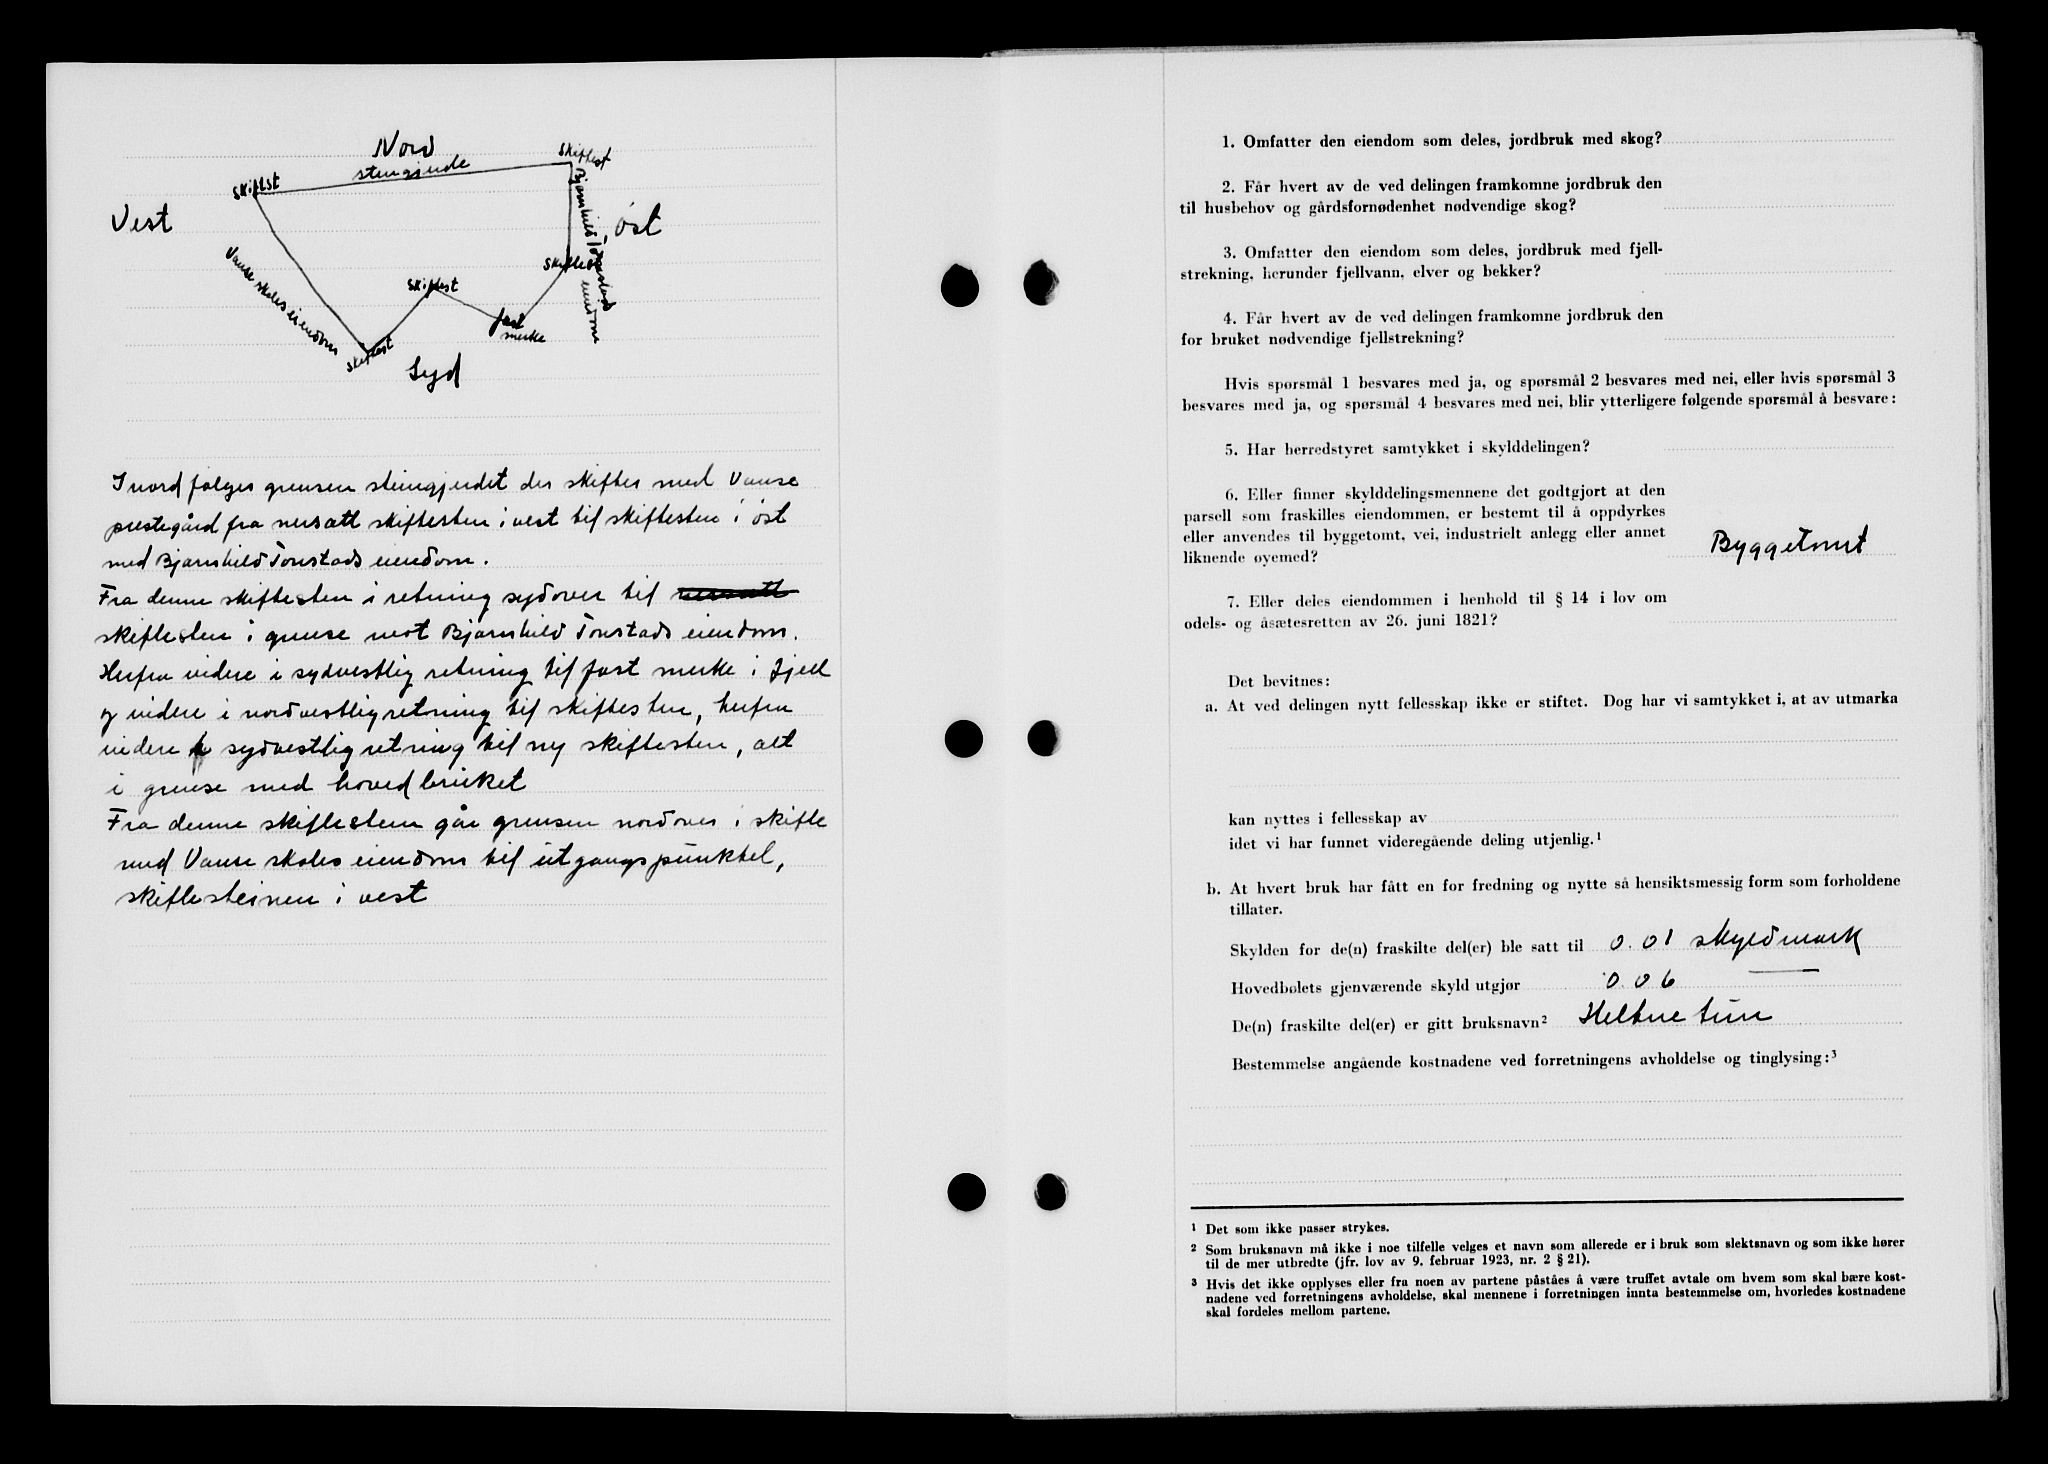 Nord
stengjerde
Skiftest
Skiftst
Bjarnhild Tonstads
eiendom
Vest
Øst
Vanse skoles eiendom
Skiftest
Skiftest
fast
merke
Skiftest
Syd
I nord følger grensen steingjerdet der skifter med Vanse
prestegård fra nersatt skiftesten i vest til skiftesten i øst
med Bjarnhild Tonstads eiendom.
Fra denne skiftesten i retning sydover til
skiftesten i grense mot Bjarnhild Tonstads eiendom.
Herfra videre i sydvestlig retning til fast merke i fjell
og videre i nordvestlig retning til skiftesten, herfra
videre i sydvestlig retning til ny skiftesten, alt
i grense med hovedbruket
Fra denne skiftesten går grensen nordover i skifte
med Vanse skoles eiendom til utgangspunktet,
skiftesteinen i vest
1. Omfatter den eiendom som deles, jordbruk med skog?
2. Får hvert av de ved delingen framkomne jordbruk den
til husbehov og gårdsfornødenhet nødvendige skog?
3. Omfatter den eiendom som deles, jordbruk med fjell-
strekning, herunder fjellvann, elver og bekker?
4. Får hvert av de ved delingen framkomne jordbruk den
for bruket nødvendige fjellstrekning?
Hvis spørsmål 1 besvares med ja, og spørsmål 2 besvares med nei, eller hvis spørsmål 3
besvares med ja, og spørsmål 4 besvares med nei, blir ytterligere følgende spørsmål å besvare:
5. Har herredstyret samtykket i skylddelingen?
6. Eller finner skylddelingsmennene det godtgjort at den
parsell som fraskilles eiendommen, er bestemt til å oppdyrkes
eller anvendes til byggetomt, vei, industrielt anlegg eller annet
liknende øyemed?
Byggetomt
7. Eller deles eiendommen i henhold til § 14 i lov om
odels- og åsætesretten av 26. juni 1821?
Det bevitnes:
a. At ved delingen nytt fellesskap ikke er stiftet. Dog har vi samtykket i, at av utmarka
kan nyttes i fellesskap av
idet vi har funnet videregående deling utjenlig.¹
b. At hvert bruk har fått en for fredning og nytte så hensiktsmessig form som forholdene
tillater.
Skylden for de(n) fraskilte del(er) ble satt til 0.01 skyldmark
Hovedbølets gjenværende skyld utgjør 0.06 —
De(n) fraskilte del(er) er gitt bruksnavn² Heltnetun
Bestemmelse angående kostnadene ved forretningens avholdelse og tinglysing:³
¹ Det som ikke passer strykes.
² Som bruksnavn må ikke i noe tilfelle velges et navn som allerede er i bruk som slektsnavn og som ikke hører
til de mer utbredte (jfr. lov av 9. februar 1923, nr. 2 § 21).
³ Hvis det ikke opplyses eller fra noen av partene påståes å være truffet avtale om hvem som skal bære kost-
nadene ved forretningens avholdelse, skal mennene i forretningen innta bestemmelse om, hvorledes kostnadene
skal fordeles mellom partene.